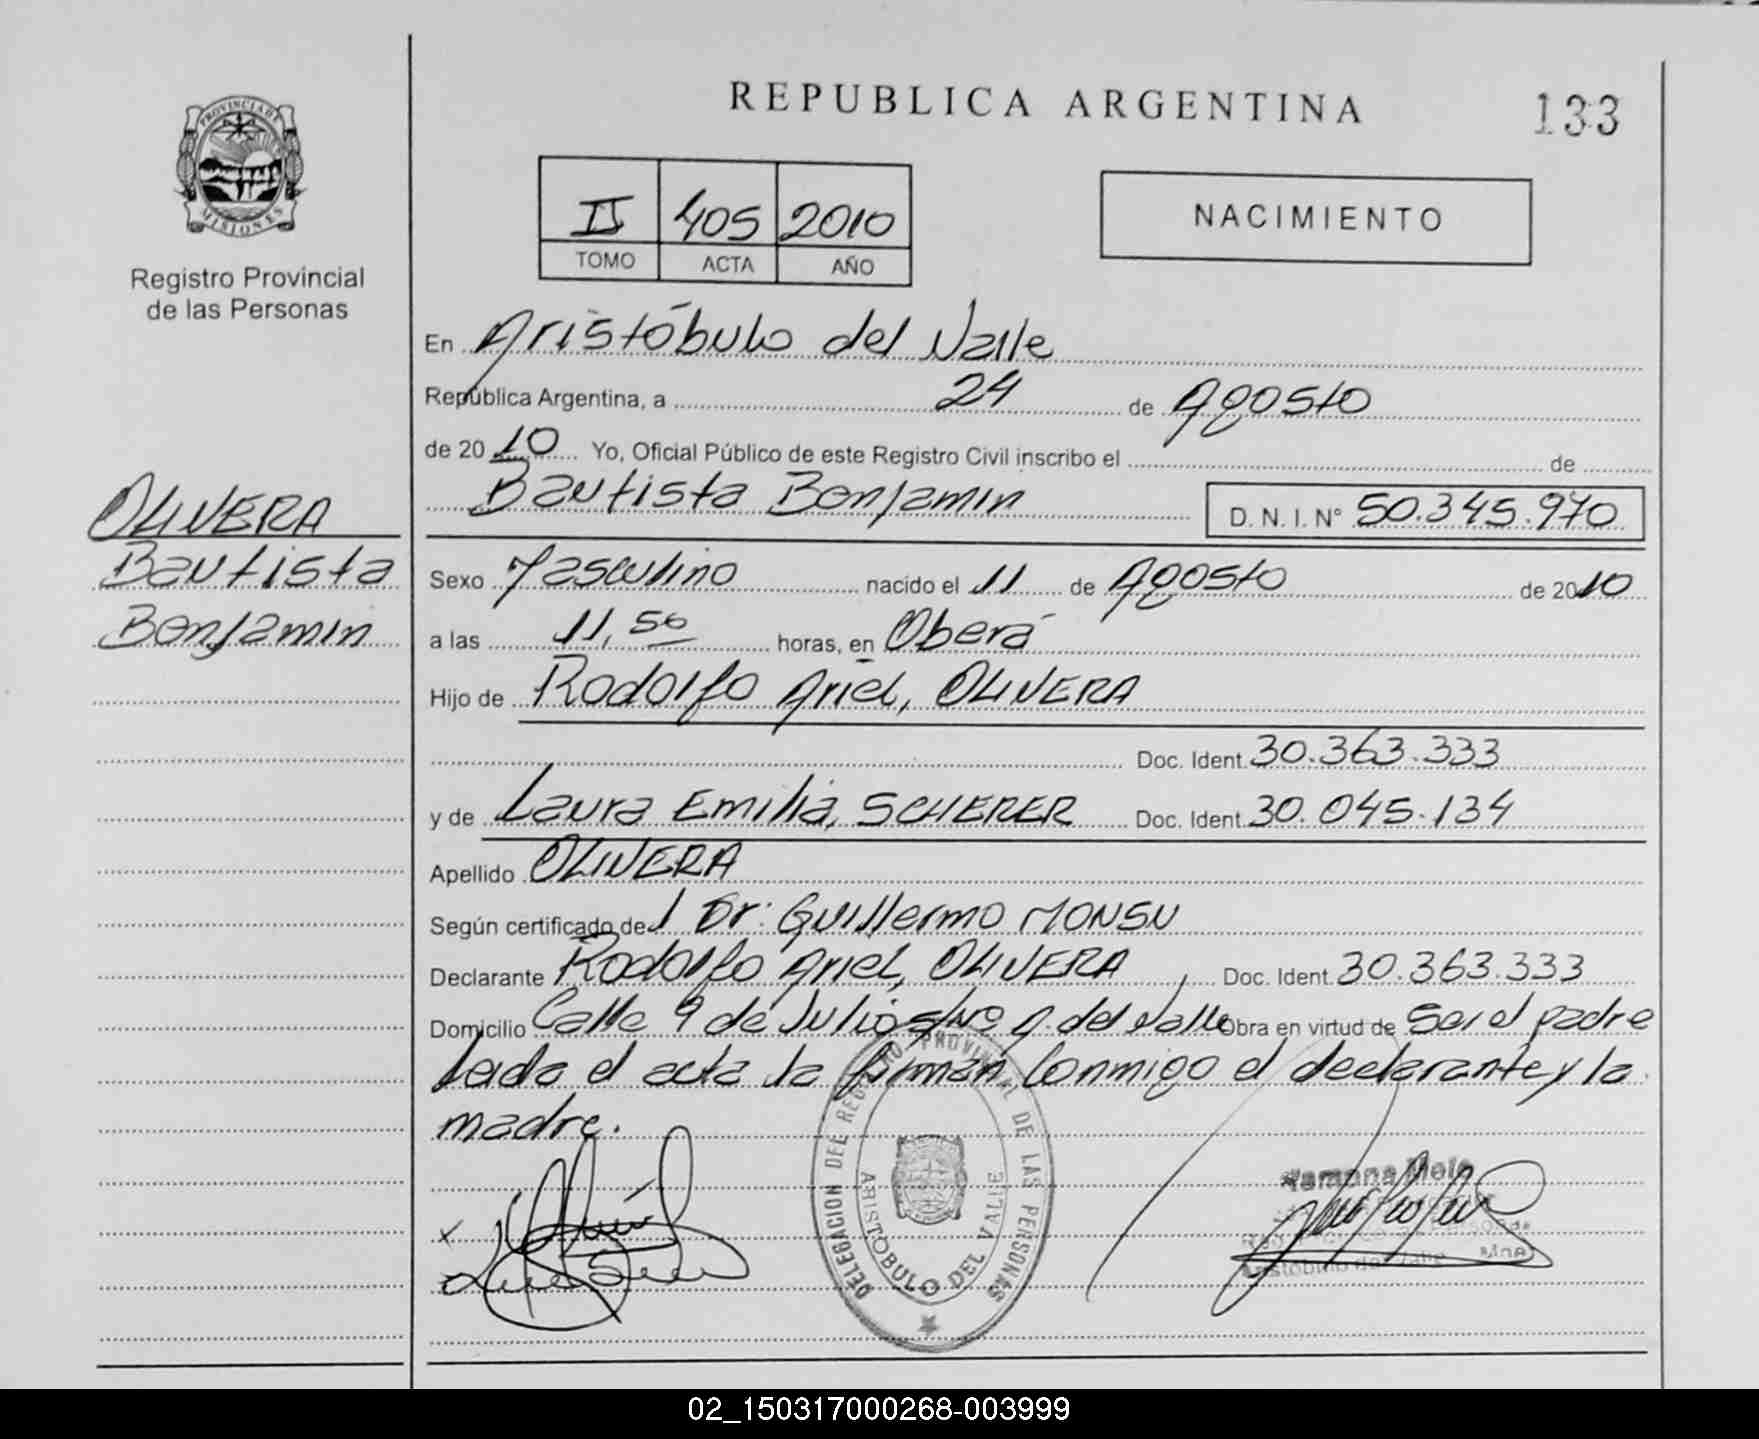 REPUBLICA ARGENTINA
133
PROVINCIA DE
MISIONES
Registro Provincial
de las Personas
II 405 2010
TOMO ACTA AÑO
NACIMIENTO
En Aristóbulo del Valle
República Argentina, a 24 de Agosto
de 2010 Yo, Oficial Público de este Registro Civil inscribo el de
Bautista Benjamin D. N. I. N° 50.345.970
OLIVERA
Bautista
Benjamin
Sexo Masculino nacido el 11 de Agosto de 2010
a las 11,50 horas, en Oberá
Hijo de Rodolfo Ariel, OLIVERA
Doc. Ident. 30.363.333
y de Laura Emilia, SCHERER Doc. Ident. 30.045.134
Apellido OLIVERA
Según certificado del Dr: Guillermo MONSU
Declarante Rodolfo Ariel, OLIVERA Doc. Ident. 30.363.333
Domicilio Calle 9 de Julio s/Nº A. del Valle Obra en virtud de ser el padre
Leida el acta la firman conmigo el declarante y la
madre.
DELEGACION DEL REGISTRO PROVINCIAL DE LAS PERSONAS
ARISTOBULO DEL VALLE
Ramona
Aristobulo del Valle Mnes
02_150317000268-003999